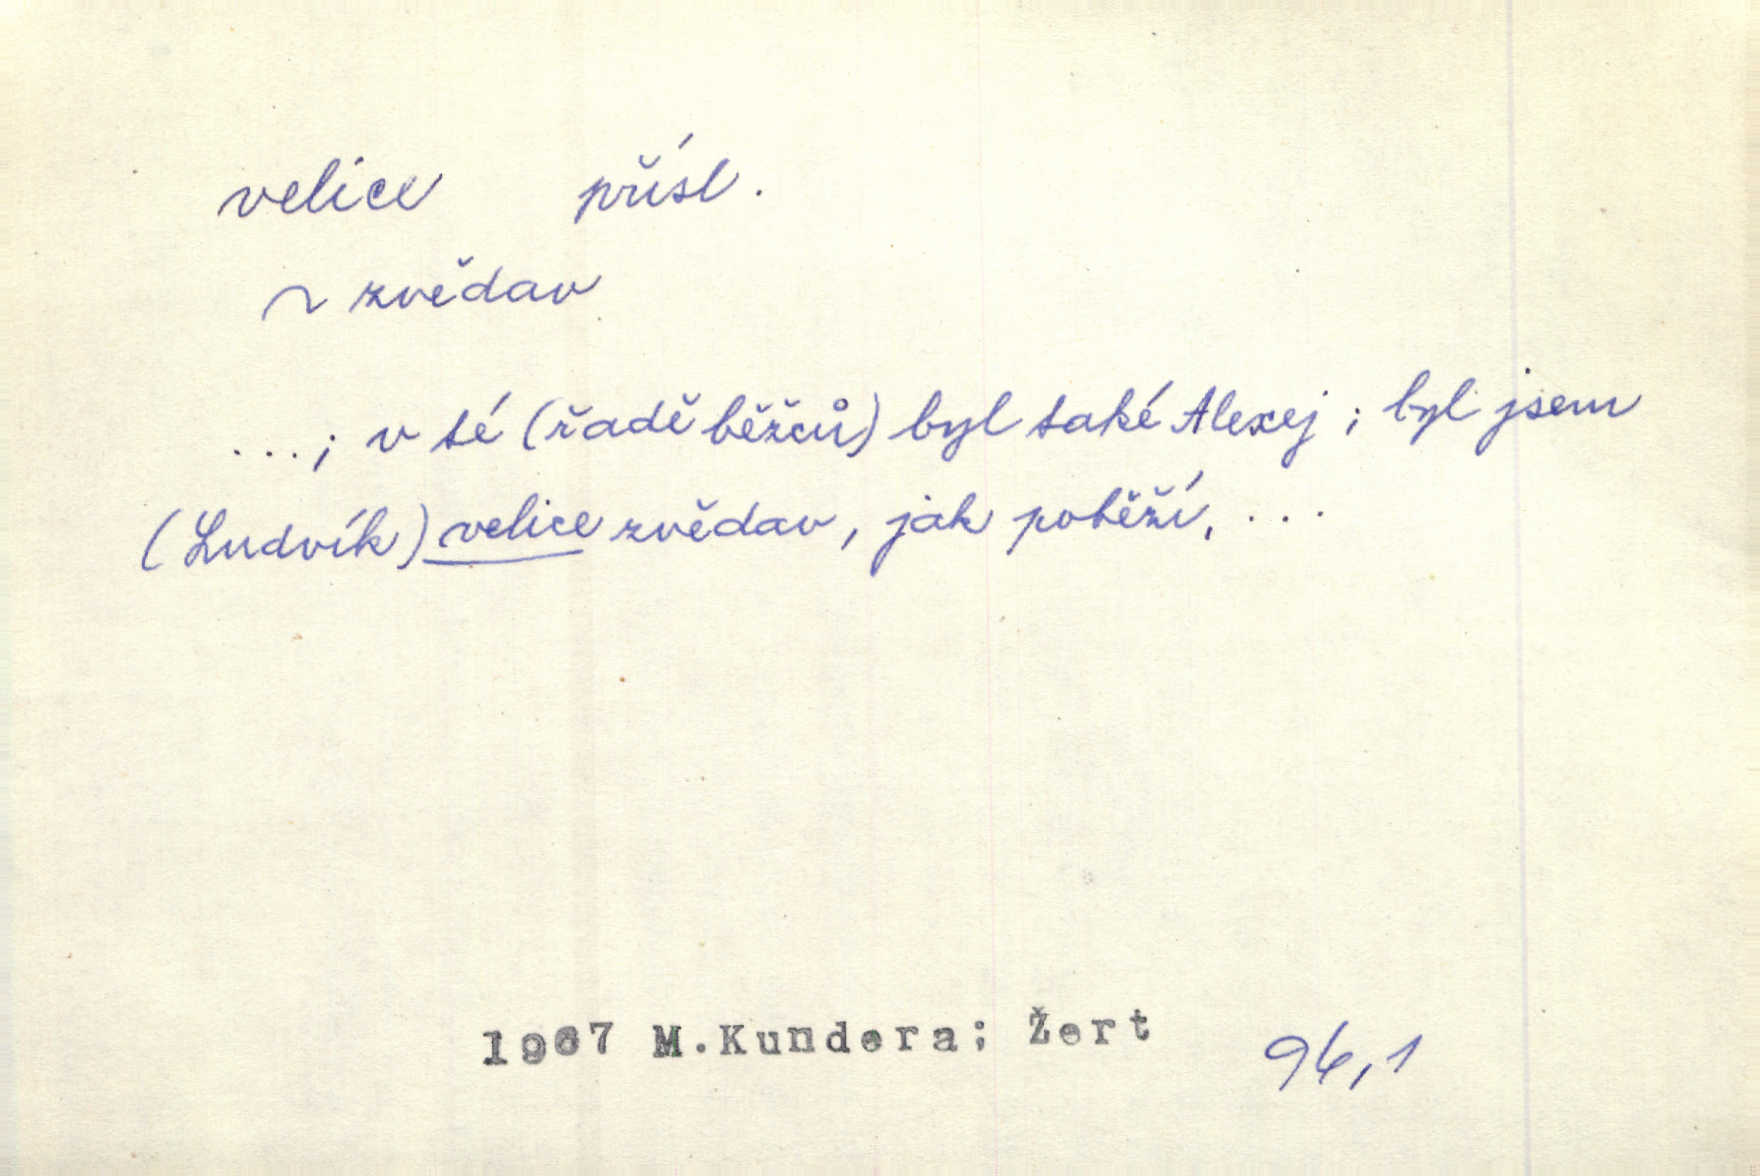 velice přísl.
~ zvědav
...; v té (řadě běžců) byl také Alexej; byl jsem
(Ludvík) velice zvědav, jak poběží, ...
1967 M.Kundera; Žert 96,1